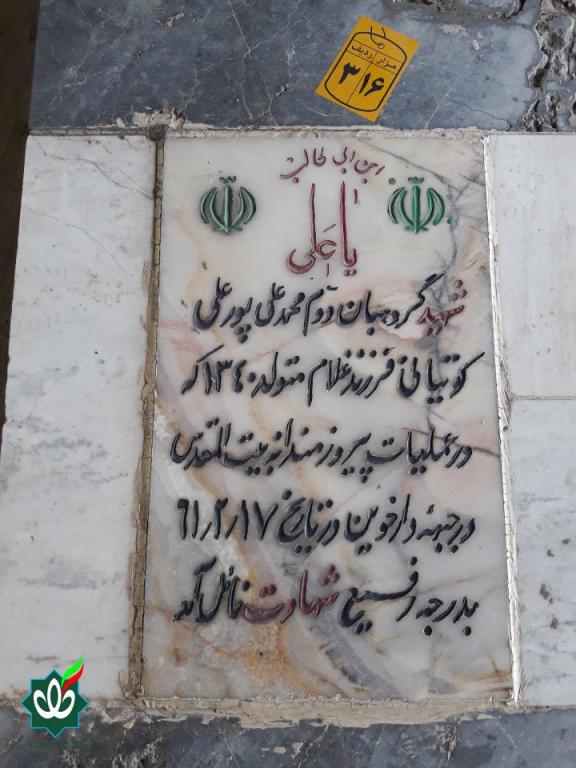 مزار ردیف
۳ ۱۶
ابن ابی طالب
یا علی
شهید گروهبان دوم محمد علی پور علی
کوتیانی فرزند غلام متولد ۱۳۴۰ که
در عملیات پیروزمندانه بیت المقدس
در جبهه دارخوین در تاریخ ۶۱٫۲٫۱۷
بدرجه رفیع شهادت نائل آمد